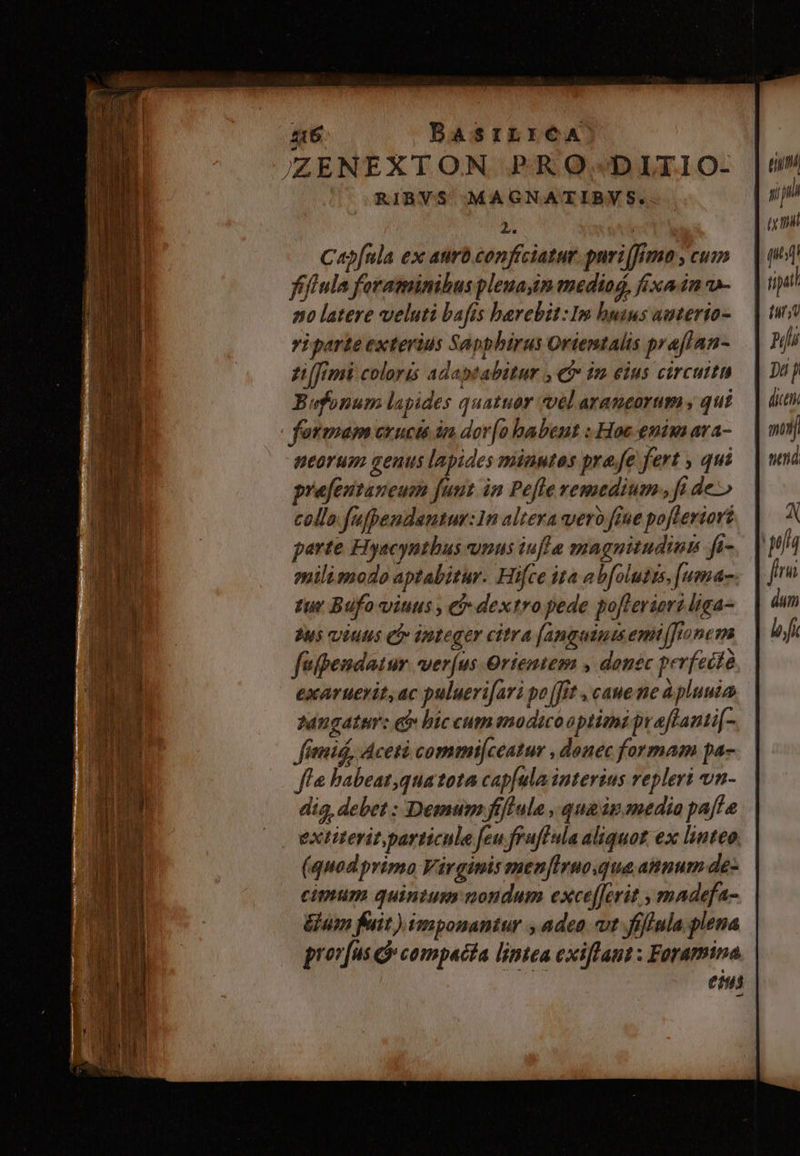 216 BASILICA
ZENEXTON PRO DITIO-
RIBVS MAGNATIBVS.
2.
Capſula ex auro conficiatur puriſſimo, cum
fiſtula foraminibus plena, in medioq́, fixa in v-
no latere veluti baſis hærebit: In huius anterio-
ri parte exterius Sapphirus Orientalis præſtan-
tiſſimi coloris adaptabitur, & in eius circuitu
Bufonum lapides quatuor vel araneorum, qui
formam crucis in dorſo habent: Hoc enim ara-
neorum genus lapides minutos præ ſe fert, qui
præſentaneum ſunt in Peſte remedium, ſi de
collo ſuſpendantur: In altera verò ſiue poſteriori
parte Hyacynthus vnus iuſtæ magnitudinis ſi-
mili modo aptabitur. Hiſce ita abſolutis, ſuma-
tur Bufo viuus, & dextro pede poſteriori liga-
tus viuus & integer citra ſanguinis emiſſionem
ſuſpendatur verſus Orientem, donec perfectè
exaruerit, ac pulueriſari poſſit, caue ne à pluuia
tangatur: & hic cum modico optimi præſtantiſ-
ſimiq́, Aceti commiſceatur, donec formam pa-
ſtæ habeat, qua tota capſula interius repleri vn-
diq, debet: Demum fiſtulæ, quæ in media paſta
extiterit, particulæ ſeu fruſtula aliquot ex linteo
(quod primo Virginis menſtruo, quæ annum de-
cimum quintum nondum exceſſerit, madefa-
ctum fuit) imponantur, adeo vt fiſtula plena
prorſus & compacta lintea exiſtant: Foramina
eius